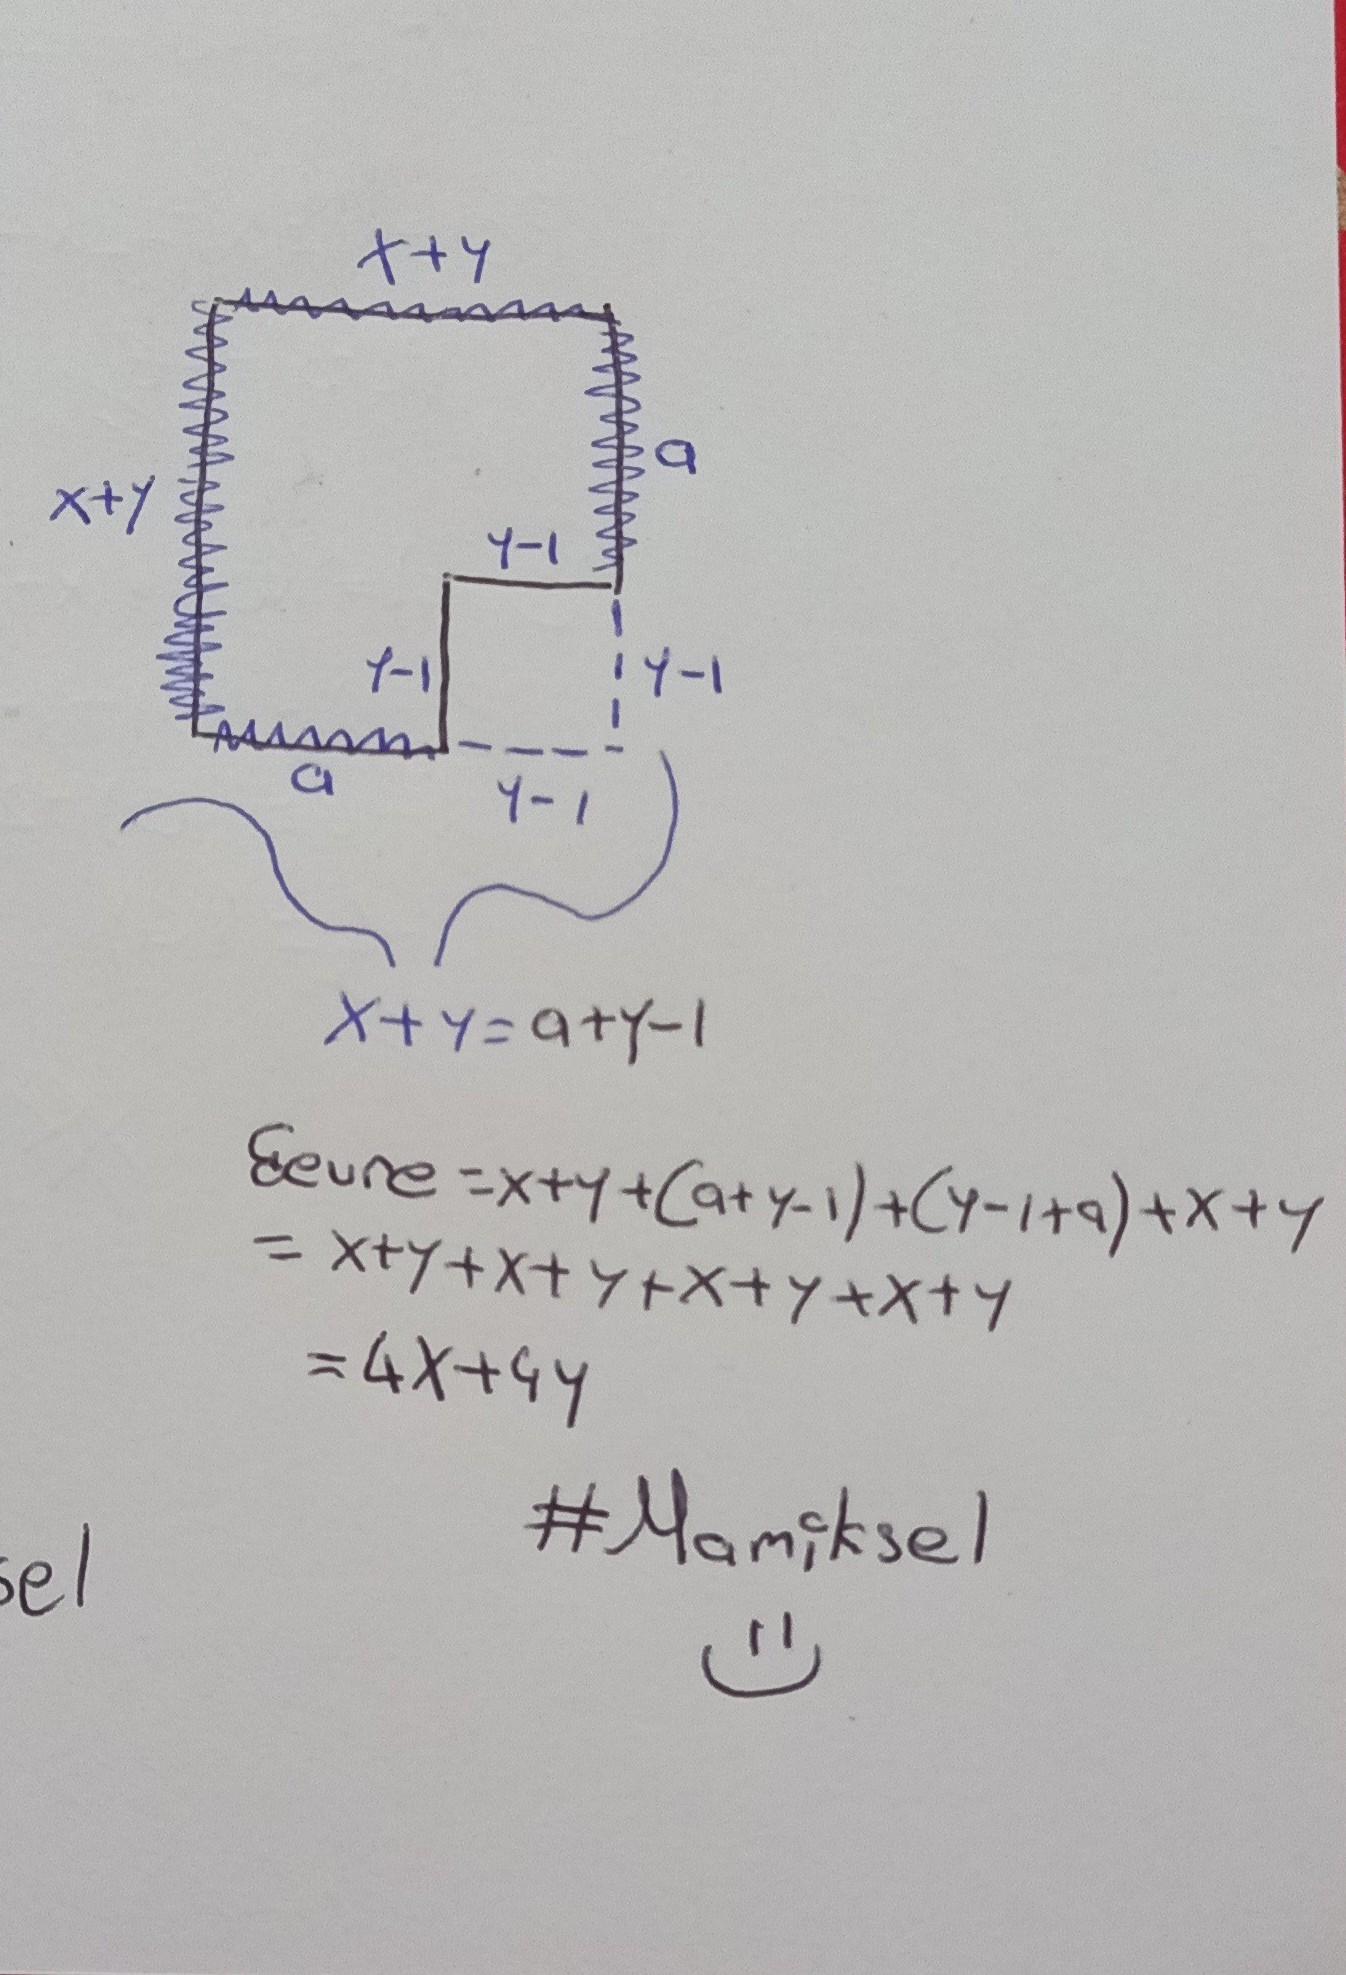 x+y
a
x+y
y-1
y-1
y-1
a
y-1
x+y=a+y-1
Çevre=x+y+(a+y-1)+(y-1+a)+x+y
= x+y+x+y+x+y+x+y
=4x+4y
#Mamiksel
sel